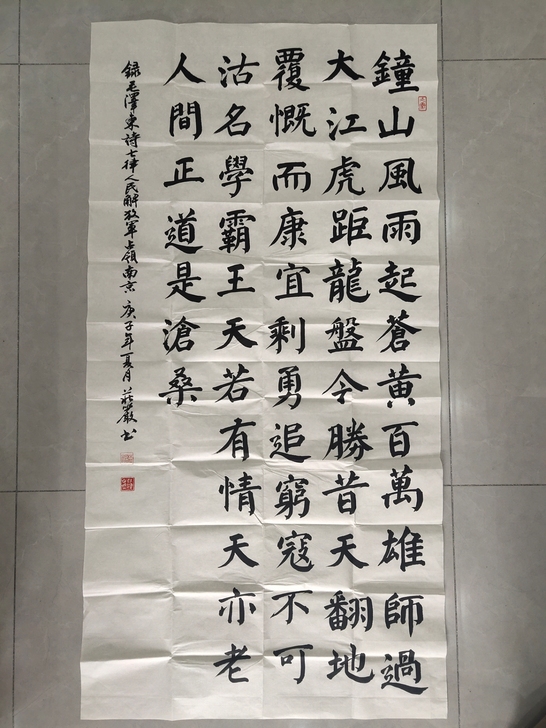 鐘山風雨起蒼黃百萬雄師過
大江虎距龍盤今勝昔天翻地
覆慨而康宜剩勇追窮寇不可
沽名學霸王天若有情天亦老
人間正道是滄桑
錄毛澤東詩七律人民解放軍占領南京 庚子年夏月 莊嚴書